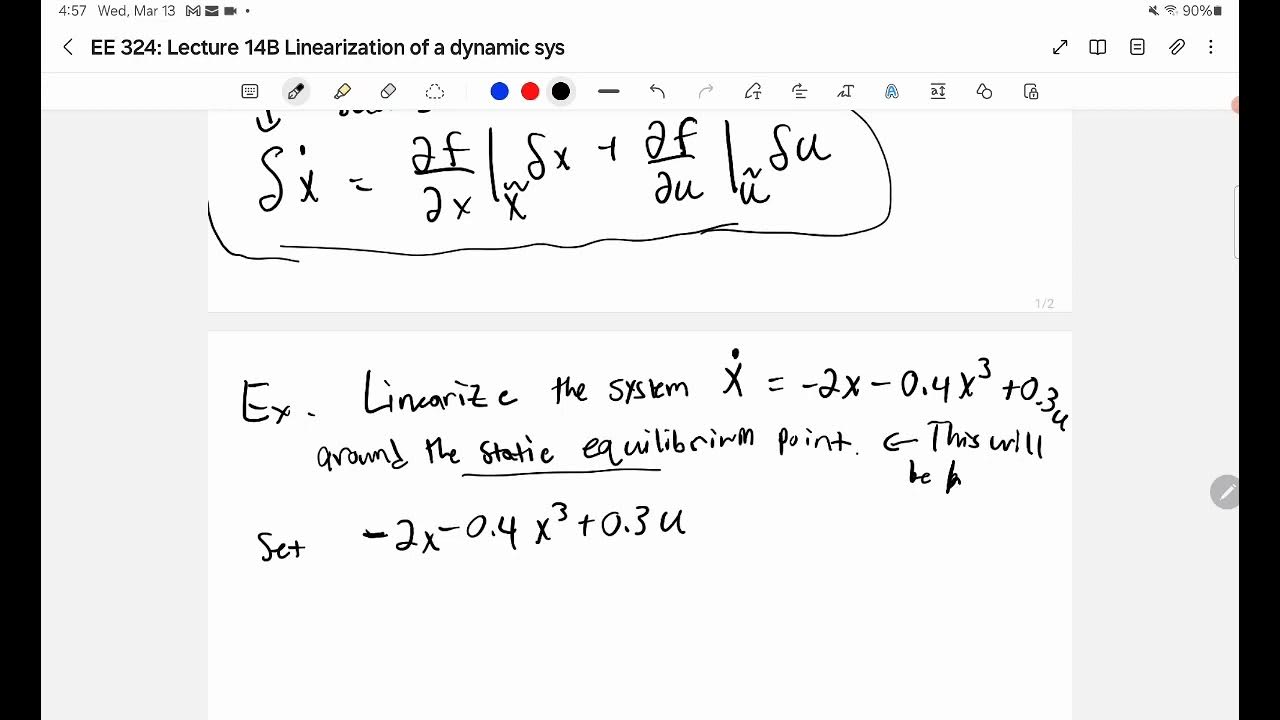 4:57 Wed, Mar 13
90%
EE 324: Lecture 14B Linearization of a dynamic sys
δẋ = ∂f/∂x |x̃ δx + ∂f/∂u |ũ δu
1/2
Ex. Linearize the system ẋ = -2x - 0.4x³ + 0.3u
around the static equilibrium point. ← This will
be
Set -2x - 0.4x³ + 0.3u